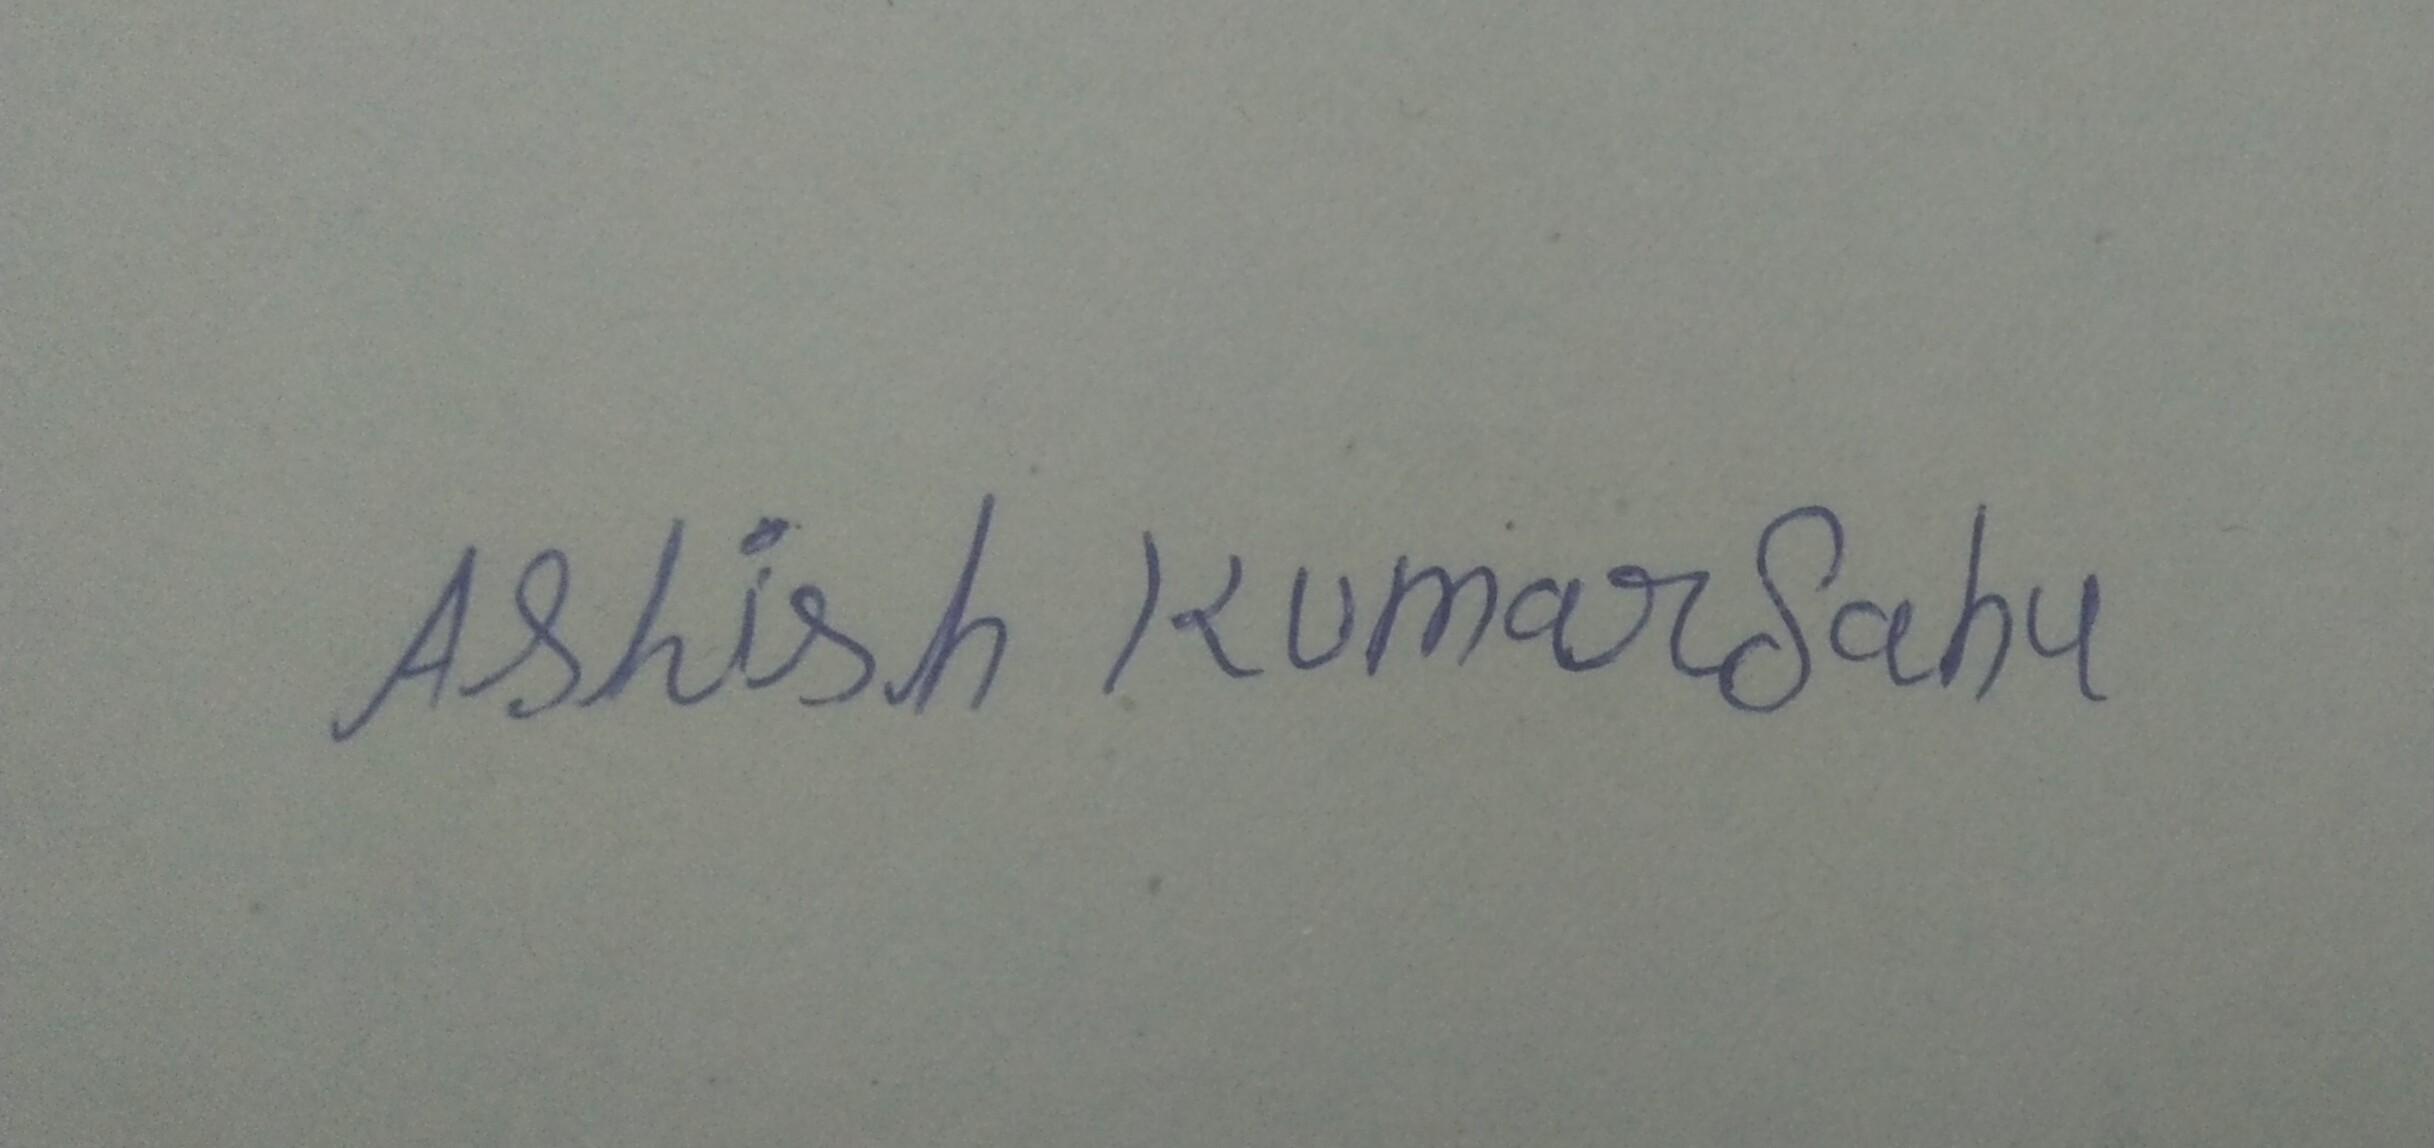 Ashish Kumar Sahu